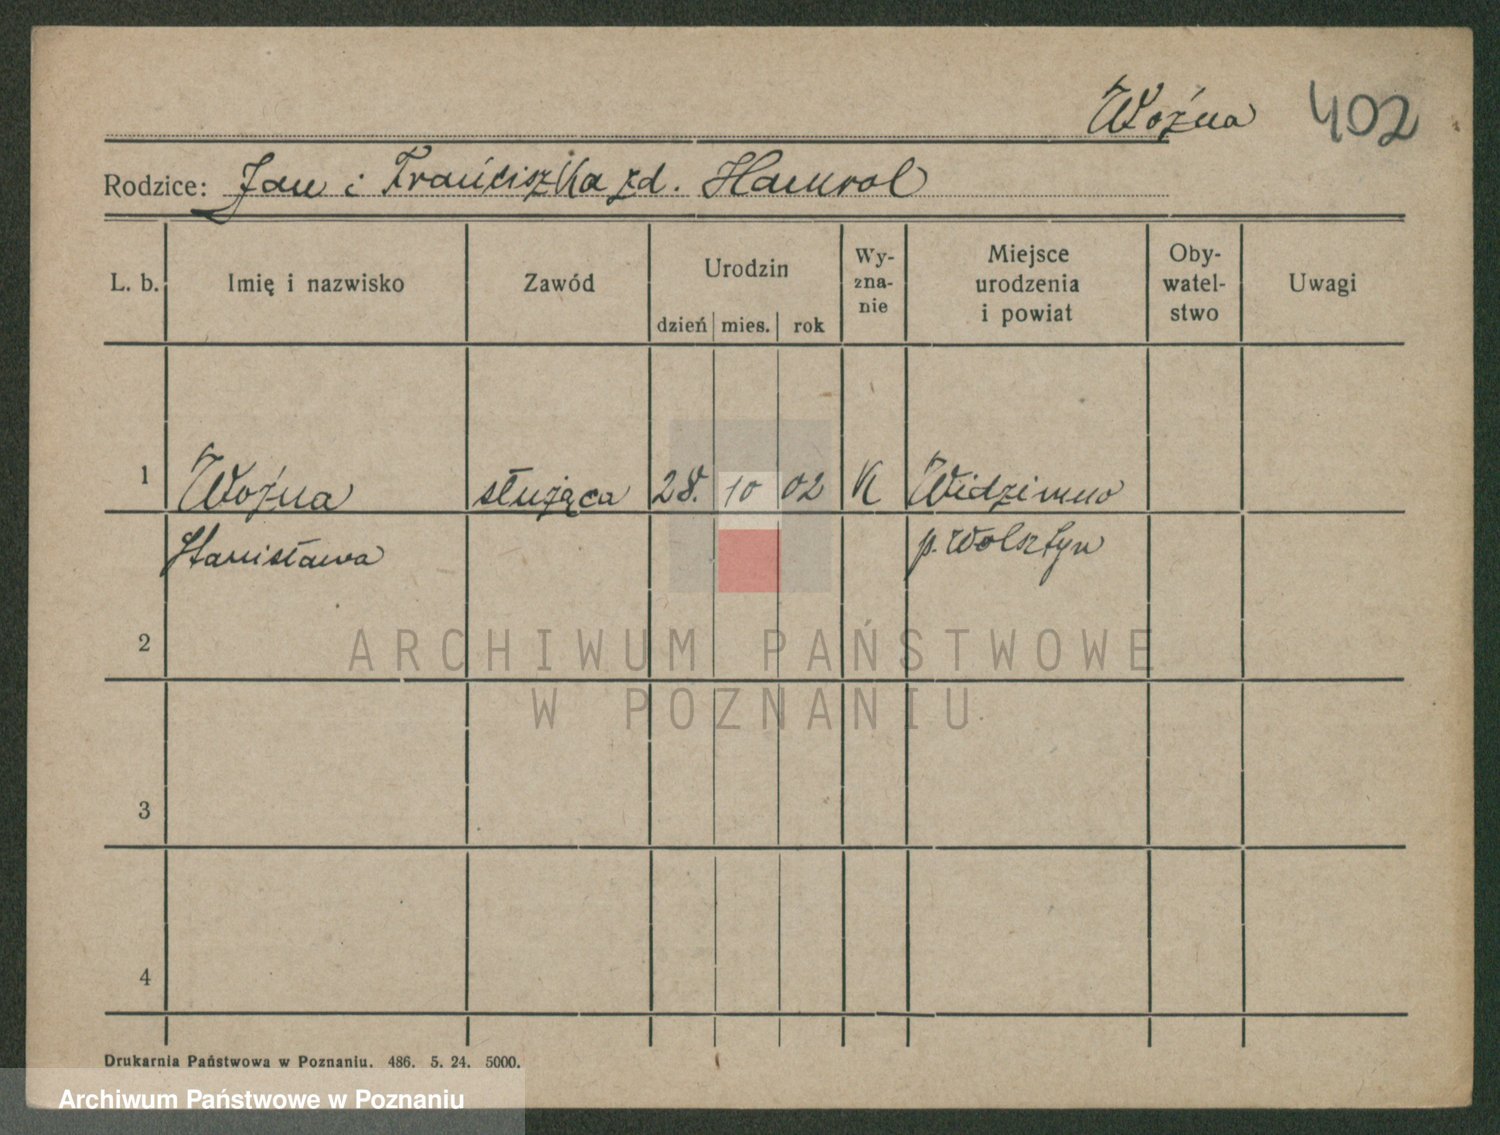 Woźna 402
Rodzice: Jan i Franciszka zd. Hamrol
L. b. Imię i nazwisko Zawód Urodzin dzień mies. rok Wy-zna-nie Miejsce urodzenia i powiat Oby-watel-stwo Uwagi
1 Woźna służąca 28. 10 02 K Widzimno
Stanisława p. Wolsztyn
2
ARCHIWUM PAŃSTWOWE
W POZNANIU
3
4
Drukarnia Państwowa w Poznaniu. 486. 5. 24. 5000.
Archiwum Państwowe w Poznaniu